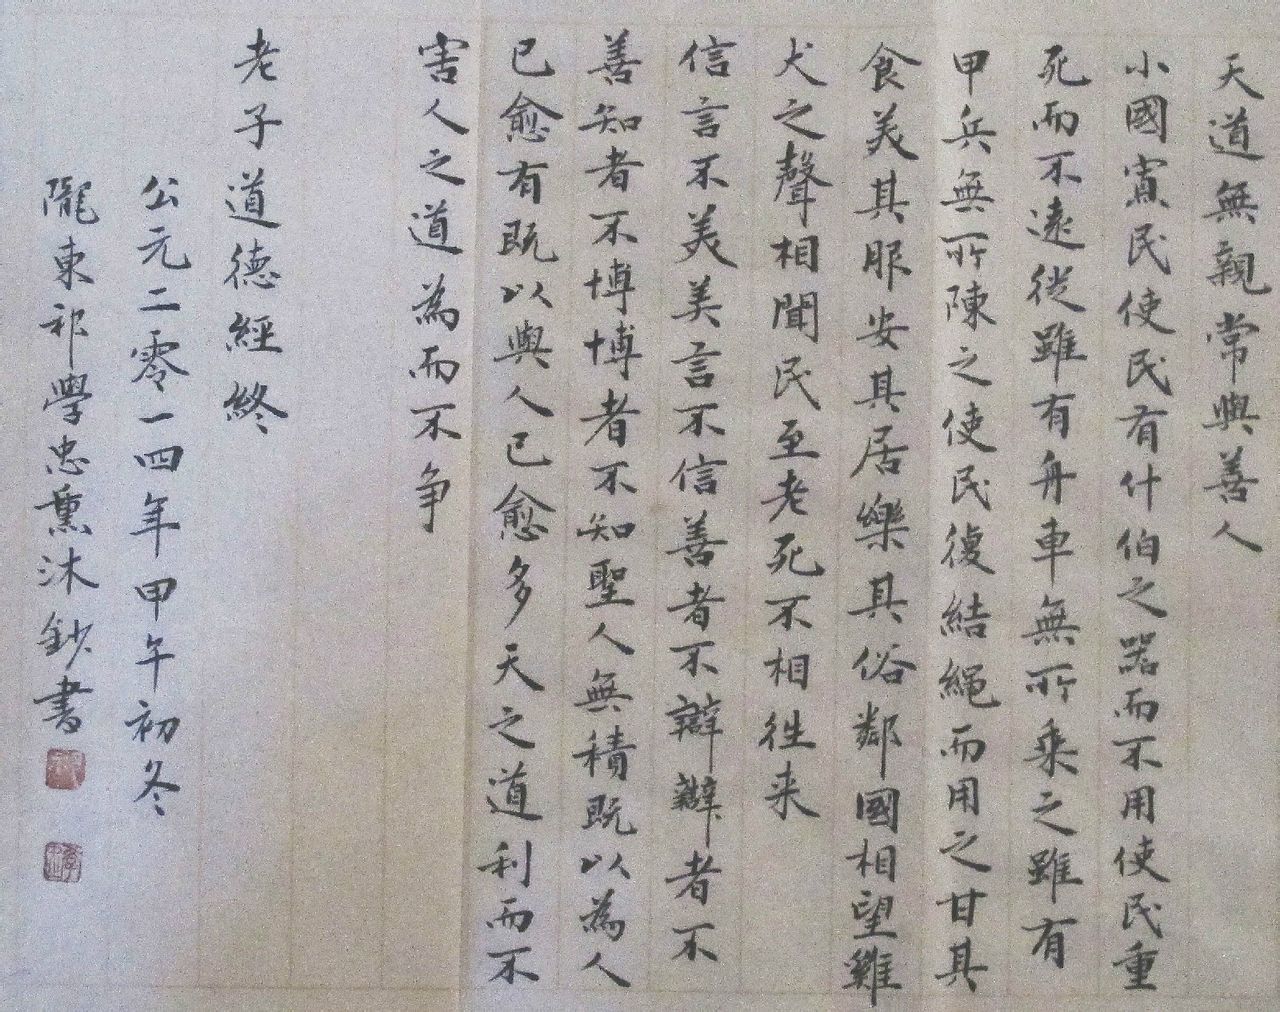 天道無親常與善人
小國寡民使民有什伯之器而不用使民重
死而不遠徙雖有舟車無所乘之雖有
甲兵無所陳之使民復結繩而用之甘其
食美其服安其居樂其俗鄰國相望雞
犬之聲相聞民至老死不相往来
信言不美美言不信善者不辯辯者不
善知者不博博者不知聖人無積既以為人
已愈有既以與人已愈多天之道利而不
害人之道為而不争
老子道德經終
公元二零一四年甲午初冬
隴東祁學忠熏沐鈔書